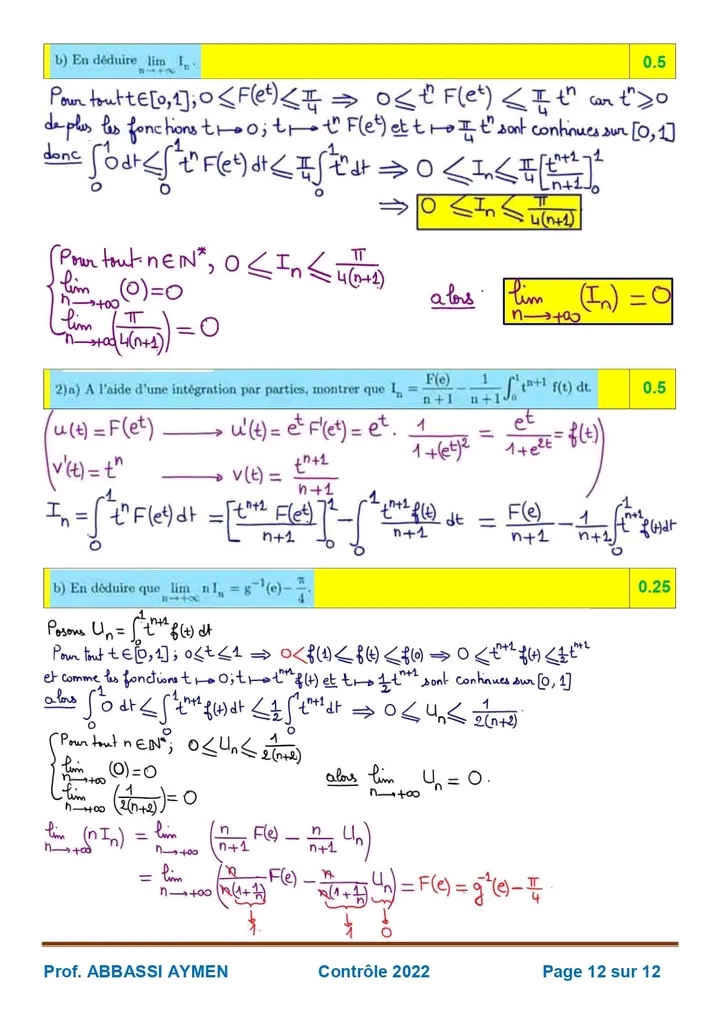 b) En déduire lim Iₙ. 0.5
n→+∞
Pour tout t∈[0,1]; 0 ≤ F(eᵗ) ≤ π/4 ⇒ 0 ≤ tⁿ F(eᵗ) ≤ π/4 tⁿ car tⁿ ≥ 0
de plus les fonctions t↦0; t↦tⁿ F(eᵗ) et t↦π/4 tⁿ sont continues sur [0,1]
donc ∫₀¹ 0 dt ≤ ∫₀¹ tⁿ F(eᵗ) dt ≤ π/4 ∫₀¹ tⁿ dt ⇒ 0 ≤ Iₙ ≤ π/4 [tⁿ⁺¹/(n+1)]₀¹
⇒ 0 ≤ Iₙ ≤ π/(4(n+1))
Pour tout n∈ℕ*, 0 ≤ Iₙ ≤ π/(4(n+1))
lim (0)=0
n→+∞
alors lim (Iₙ) = 0
n→+∞
lim (π/(4(n+1))) = 0
n→+∞
2)a) A l'aide d'une intégration par parties, montrer que Iₙ = F(e)/(n+1) − 1/(n+1) ∫₀¹ tⁿ⁺¹ f(t) dt. 0.5
u(t) = F(eᵗ) ⟶ u'(t) = eᵗ F'(eᵗ) = eᵗ. 1/(1+(eᵗ)²) = eᵗ/(1+e²ᵗ) = f(t)
v'(t) = tⁿ ⟶ v(t) = tⁿ⁺¹/(n+1)
Iₙ = ∫₀¹ tⁿ F(eᵗ) dt = [tⁿ⁺¹ F(eᵗ)/(n+1)]₀¹ − ∫₀¹ tⁿ⁺¹ f(t)/(n+1) dt = F(e)/(n+1) − 1/(n+1) ∫₀¹ tⁿ⁺¹ f(t) dt
b) En déduire que lim n Iₙ = g⁻¹(e) − π/4. 0.25
n→+∞
Posons Uₙ = ∫₀¹ tⁿ⁺¹ f(t) dt
Pour tout t∈[0,1]; 0 ≤ t ≤ 1 ⇒ 0 < f(1) ≤ f(t) ≤ f(0) ⇒ 0 ≤ tⁿ⁺¹ f(t) ≤ 1/2 tⁿ⁺¹
et comme les fonctions t↦0; t↦tⁿ⁺¹ f(t) et t↦1/2 tⁿ⁺¹ sont continues sur [0,1]
alors ∫₀¹ 0 dt ≤ ∫₀¹ tⁿ⁺¹ f(t) dt ≤ 1/2 ∫₀¹ tⁿ⁺¹ dt ⇒ 0 ≤ Uₙ ≤ 1/(2(n+2))
Pour tout n∈ℕ*; 0 ≤ Uₙ ≤ 1/(2(n+2))
lim (0)=0
n→+∞
alors lim Uₙ = 0.
n→+∞
lim (1/(2(n+2))) = 0
n→+∞
lim (n Iₙ) = lim (n/(n+1) F(e) − n/(n+1) Uₙ)
n→+∞ n→+∞
= lim (n/(n(1+1/n)) F(e) − n/(n(1+1/n)) Uₙ) = F(e) = g⁻¹(e) − π/4.
n→+∞
1. 1 0
Prof. ABBASSI AYMEN Contrôle 2022 Page 12 sur 12